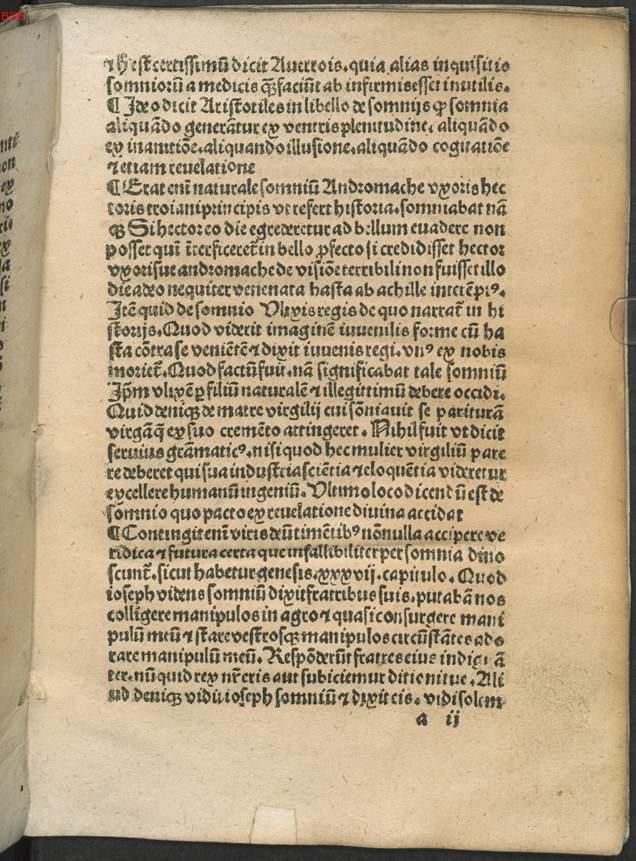 ⁊ h̄ est certissimū dicit Auerrois. quia alias inquisitio
somniorū a medicis q̄ faciūt ab infirmis esset inutilis.
¶ Ideo dicit Aristotiles in libello de somnijs ꝙ somnia
aliquādo generātur ex ventris plenitudine. aliquādo
ex inanitiōe. aliquando illusione. aliquādo cogitatiōe
⁊ etiam reuelatione
¶ Erat enī naturale somniū Andromache vxoris hec
toris troiani principis vt refert historia. somniabat nā
ꝙ Si hector eo die egrederetur ad bellum euadere non
posset quī īterficeret̄ in bello ꝓfecto si credidisset hector
vxori sue andromache de visiōe terribili non fuisset illo
die adeo nequiter venenata hasta ab achille interēptꝰ.
Itē quid de somnio Vlixis regis de quo narrat̄ in hi
storijs. Quod viderit imaginē iuuenilis forme cū ha
sta cōtra se veniētē ⁊ dixit iuuenis regi. vnꝰ ex nobis
moriet̄. Quod factū fuit. nā significabat tale somniū
Ip̄m vlixē ꝑ filiū naturalē ⁊ illegittimū debere occidi.
Quid deniqꝫ de matre virgilij cui sōniauit se pariturā
virgāqꝫ ex suo cremēto attingeret. Nihil fuit vt dicit
seruius grāmaticꝰ. nisi quod hec mulier virgiliū pare
re deberet qui sua industria sciētia ⁊ eloquētia videretur
excellere humanū ingeniū. Vltimo loco dicendū est de
somnio quo pacto ex reuelatione diuina accidat
¶ Contingit enī viris deū timētibꝰ nōnulla accipere ve
ridica ⁊ futura certa que infallibiliter per somnia dino
scunt̄. sicut habetur genesis. xxxvij. capitulo. Quod
ioseph videns somniū dixit fratribus suis. putabā nos
colligere manipulos in agro ⁊ quasi consurgere mani
pulū meū ⁊ stare vestrosqꝫ manipulos circūstātes ado
rare manipulū meū. Respōderūt fratres eius indignā
ter. nūquid rex nr̄ eris aut subiciemur ditioni tue. Ali
ud deniqꝫ vidit ioseph somniū ⁊ dixit eis. vidi solem
a ij